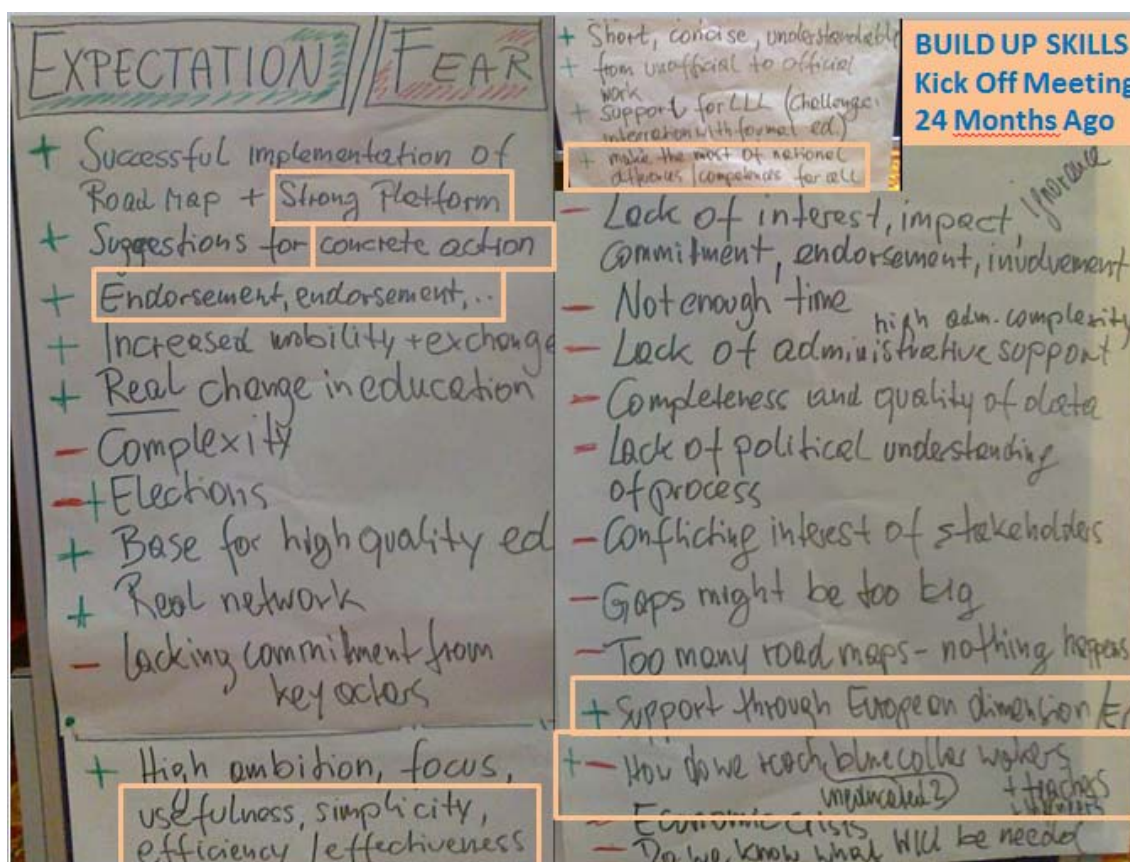 EXPECTATION // FEAR
+ Successful implementation of
Road Map + Strong Platform
+ Suggestions for concrete action
+ Endorsement, endorsement,..
+ Increased mobility + exchange
+ Real change in education
- Complexity
-+ Elections
+ Base for high quality ed
+ Real network
- Lacking commitment from
key actors
+ High ambition, focus,
usefulness, simplicity,
efficiency / effectiveness
+ Short, concise, understandable
+ from unofficial to official
work
+ Support for LLL (Challenge:
integration with formal ed.)
+ make the most of national
/ competences for all
BUILD UP SKILLS
Kick Off Meeting
24 Months Ago
- Lack of interest, impact, ignorance
commitment, endorsement, involvement
- Not enough time
high adm. complexity
- Lack of administrative support
- Completeness and quality of data
- Lack of political understanding
of process
- Conflicting interest of stakeholders
- Gaps might be too big
- Too many road maps - nothing happens
+ Support through European dimension /
+- How do we reach blue collar workers
uneducated?) + teachers
- Economic crisis
- Do we know what will be needed